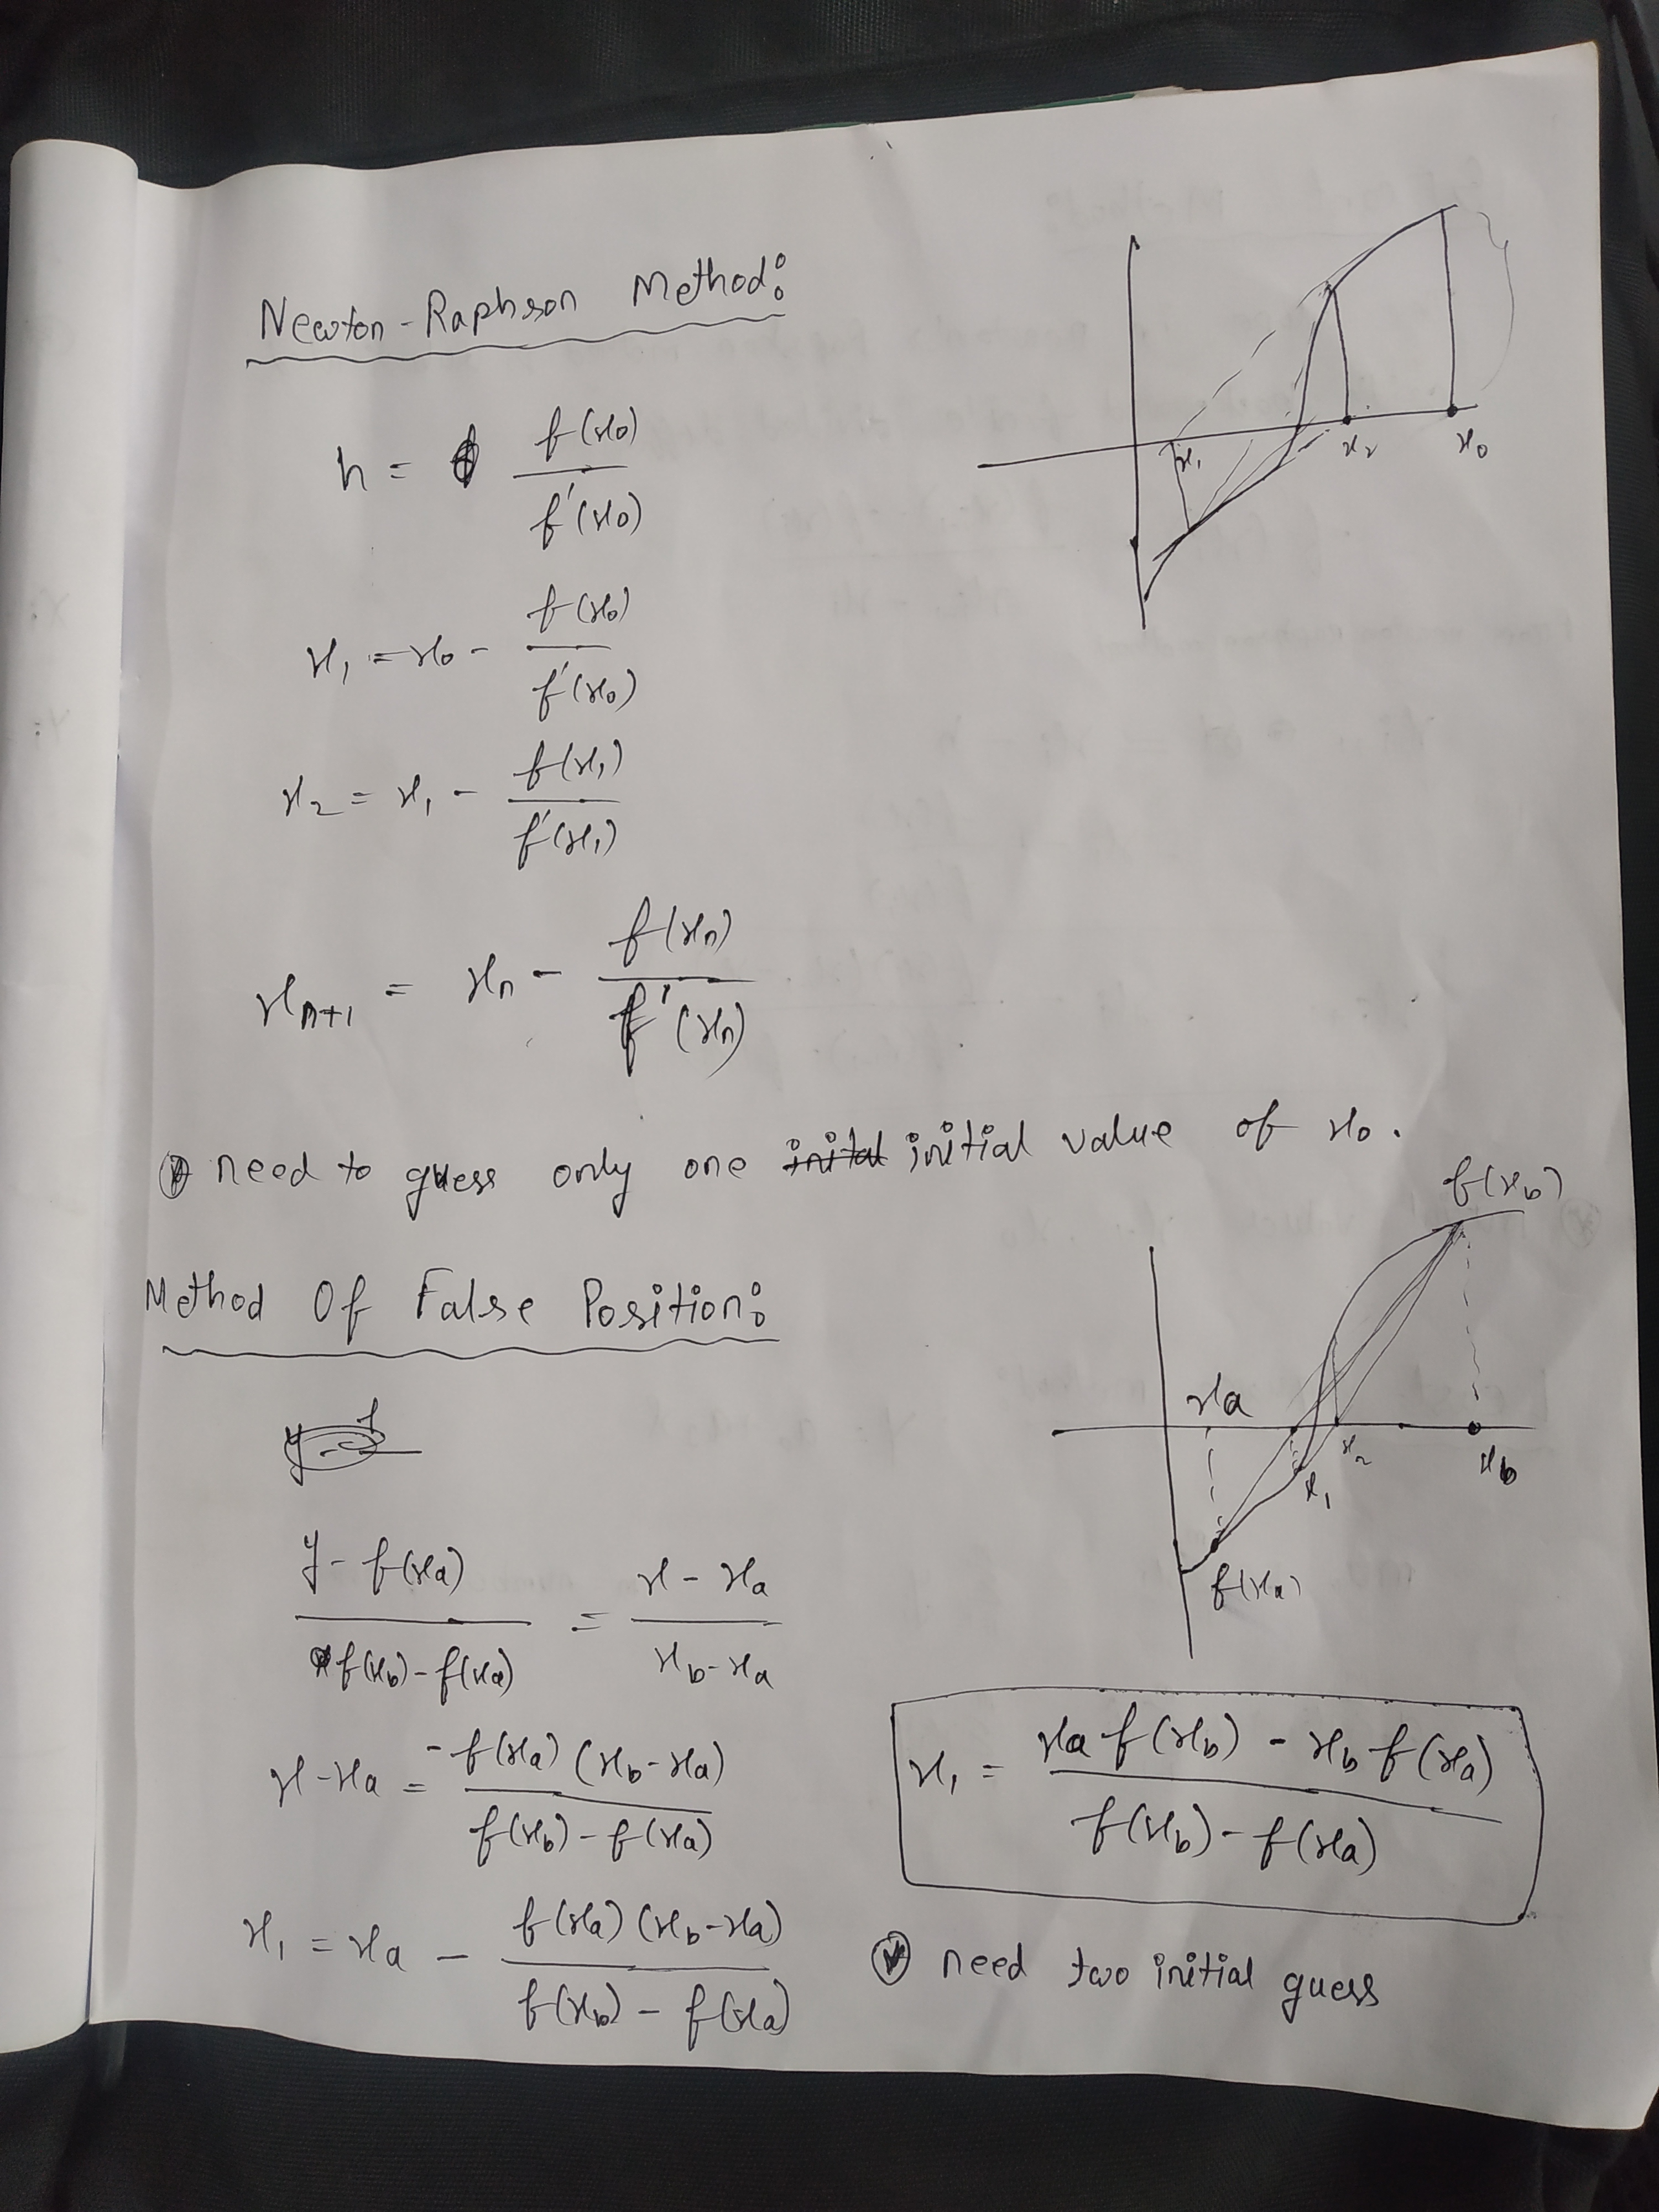 Newton-Raphson Method:
h = f(x₀) / f'(x₀)
x₁ = x₀ - f(x₀) / f'(x₀)
x₂ = x₁ - f(x₁) / f'(x₁)
xₙ₊₁ = xₙ - f(xₙ) / f'(xₙ)
x₁ x₂ x₀
need to guess only one inital initial value of x₀.
Method Of False Position:
f(x_b)
x_a x₁ x₂ x_b
f(x_a)
(y - f(x_a)) / (f(x_b) - f(x_a)) = (x - x_a) / (x_b - x_a)
x - x_a = -f(x_a) (x_b - x_a) / (f(x_b) - f(x_a))
x₁ = x_a - f(x_a) (x_b - x_a) / (f(x_b) - f(x_a))
x₁ = (x_a f(x_b) - x_b f(x_a)) / (f(x_b) - f(x_a))
need two initial guess